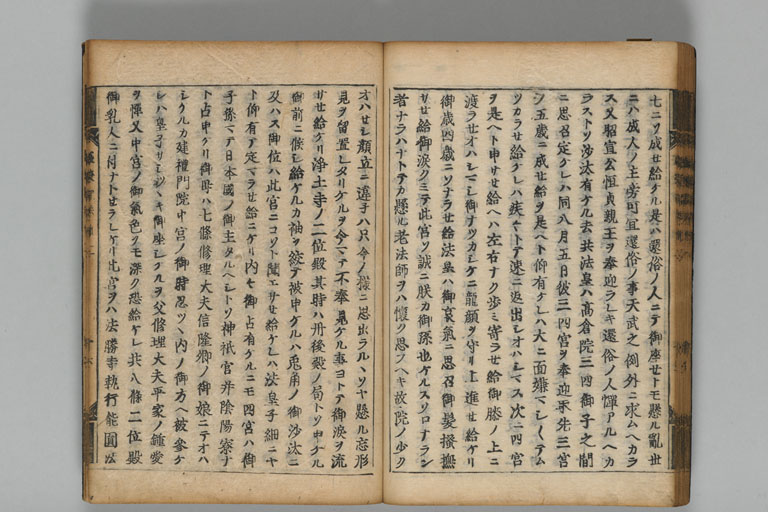 七ニソ成セ給ケル是ハ還俗ノ人ニテ御座セトモ懸ル乱世
ニハ成人ノ主旁可宜還俗ノ事天武之例外ニ求ムヘカラ
ス又昭宣公恒貞親王ヲ奉迎ラレキ還俗ノ人憚アルヘカ
ラストソ沙汰有ケル去共法皇ハ高倉院三四御子之間
ニ思召定ケレハ同八月五日彼三四宮ヲ奉迎取先三宮
ノ五歳ニ成セ給ヲ是ヘト仰有ケレハ大ニ面嫌マシ〱テム
ツカラセ給ケレハ疾〱トテ速ニ返出シオハシマス次ニ四宮
ヲ是ヘト申サセ給ヘハ左右ナク歩ミ寄ラセ給御膝ノ上ニ
渡ラセオハシマシ御ナツカシケニ龍顔ヲ守リ上進セ給ケリ
御歳四歳ニソナラセ給法皇ハ御哀気ニ思召御髪掻撫
サセ給御涙クミテ此宮ソ誠ニ朕カ御孫也ケルスソロナラン
者ナラハナトテカ懸ル老法師ヲハ懐ク思フヘキ故院ノ少ク
オハセシ顔立ニ違ヲハ只今ノ様ニ思出ラルヽソヤ懸ル忘形
見ヲ留置レタリケルヲ今マテ不奉見ケル事ヨトテ御涙ヲ流
サセ給ケリ浄土寺ノ二位殿其時ハ丹後殿ノ局トソ申ケル
御前ニ候シ給ケルカ袖ヲ絞テ被申ケルハ兎角ノ御沙汰ニ
及ハス御位ハ此宮ニコソト聞エサセ給ケレハ法皇子細ニヤ
ト仰有テ定マラセ給ニケリ内々御占有ケルニモ四宮ハ御
子孫マテ日本国ノ御主タルヘシトソ神祇官并陰陽寮ナ
ト占申ケリ御母ハ七條修理大夫信隆卿ノ御娘ニテオハ
シケルカ建礼門院中宮ノ御時忍ツヽ内ノ御方ヘ被参ケ
レハ皇子サシツヽキ御座シケルヲ父修理大夫平家ノ鍾愛
ヲ憚又中宮ノ御気色ヲモ深ク恐給ケレ共八條二位殿
御乳人ニ付ナトセラレケリ此宮ヲハ法勝寺執行能円法